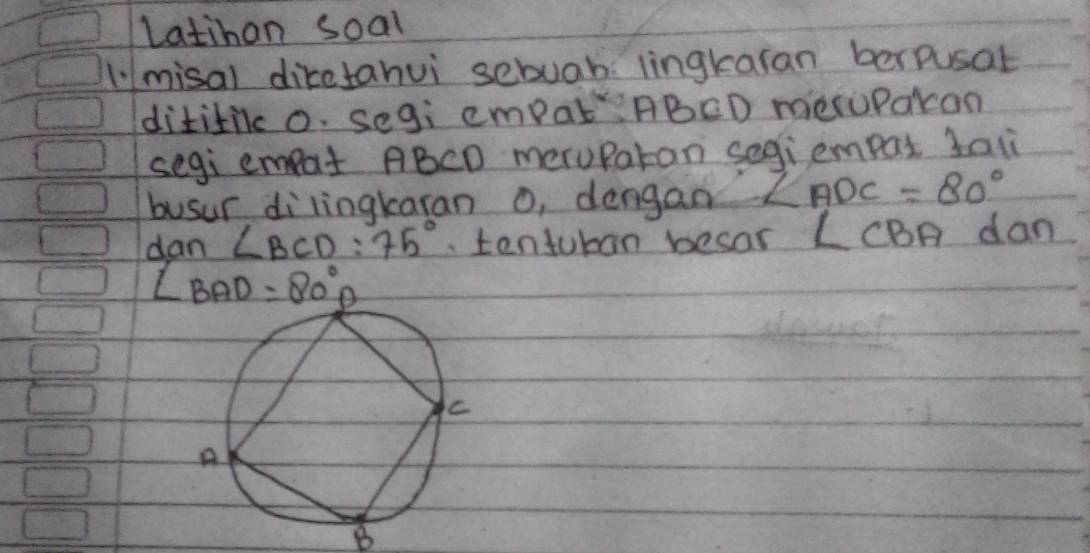 Latihan soal
1. misal diketahui sebuah lingkaran berpusat
dititik O. segi empat ABCD merupakan
segi empat ABCD merupakan segi empat tali
busur di lingkaran O, dengan ∠ADC = 80°
dan ∠BCD : 75°. tentukan besar ∠CBA dan
∠BAD = 80°
D
C
A
B